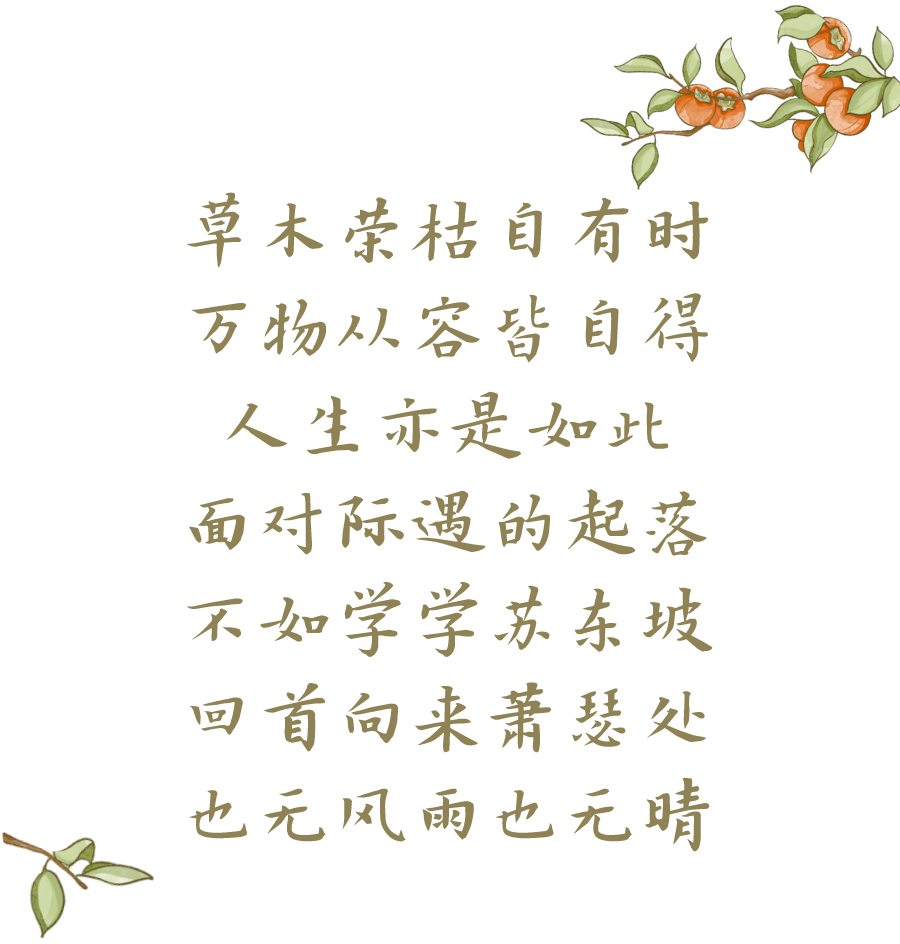 草木荣枯自有时
万物从容皆自得
人生亦是如此
面对际遇的起落
不如学学苏东坡
回首向来萧瑟处
也无风雨也无晴